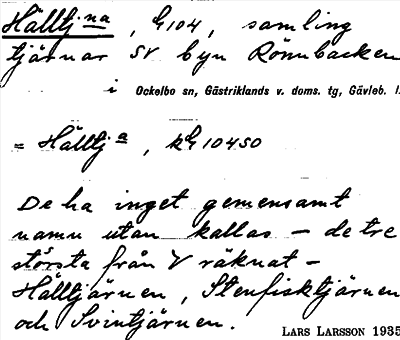 Hälltjna, G104, samling
tjärnar SV byn Rönnbacken
i Ockelbo sn, Gästriklands v. doms. tg, Gävleb. l.
= Hälltja, kG10450
De ha inget gemensamt
namn utan kallas – de tre
största från V räknat –
Hälltjärnen, Stenfisktjärnen
och Svintjärnen.
LARS LARSSON 1935